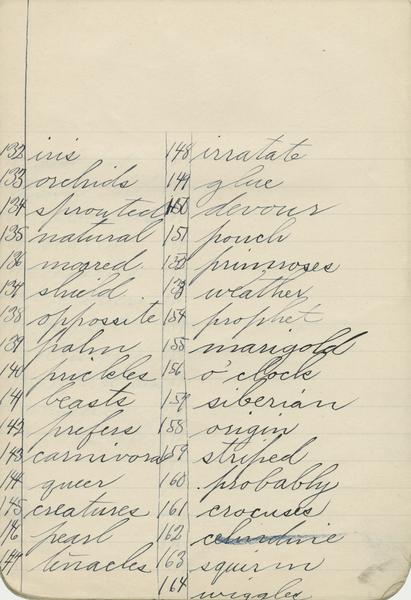 132 iris
133 orchids
134 sprouted
135 natural
136 moored
137 shield
138 oppossite
139 palm
140 prickles
141 beasts
142 prefers
143 carnivora
144 queer
145 creatures
146 pearl
147 tenacles
148 irratate
149 glue
150 devour
151 pouch
152 primroses
153 weather
154 prophet
155 marigold
156 o'clock
157 siberian
158 origin
159 striped
160 probably
161 crocuses
162 celandine
163 squirm
164 wiggles